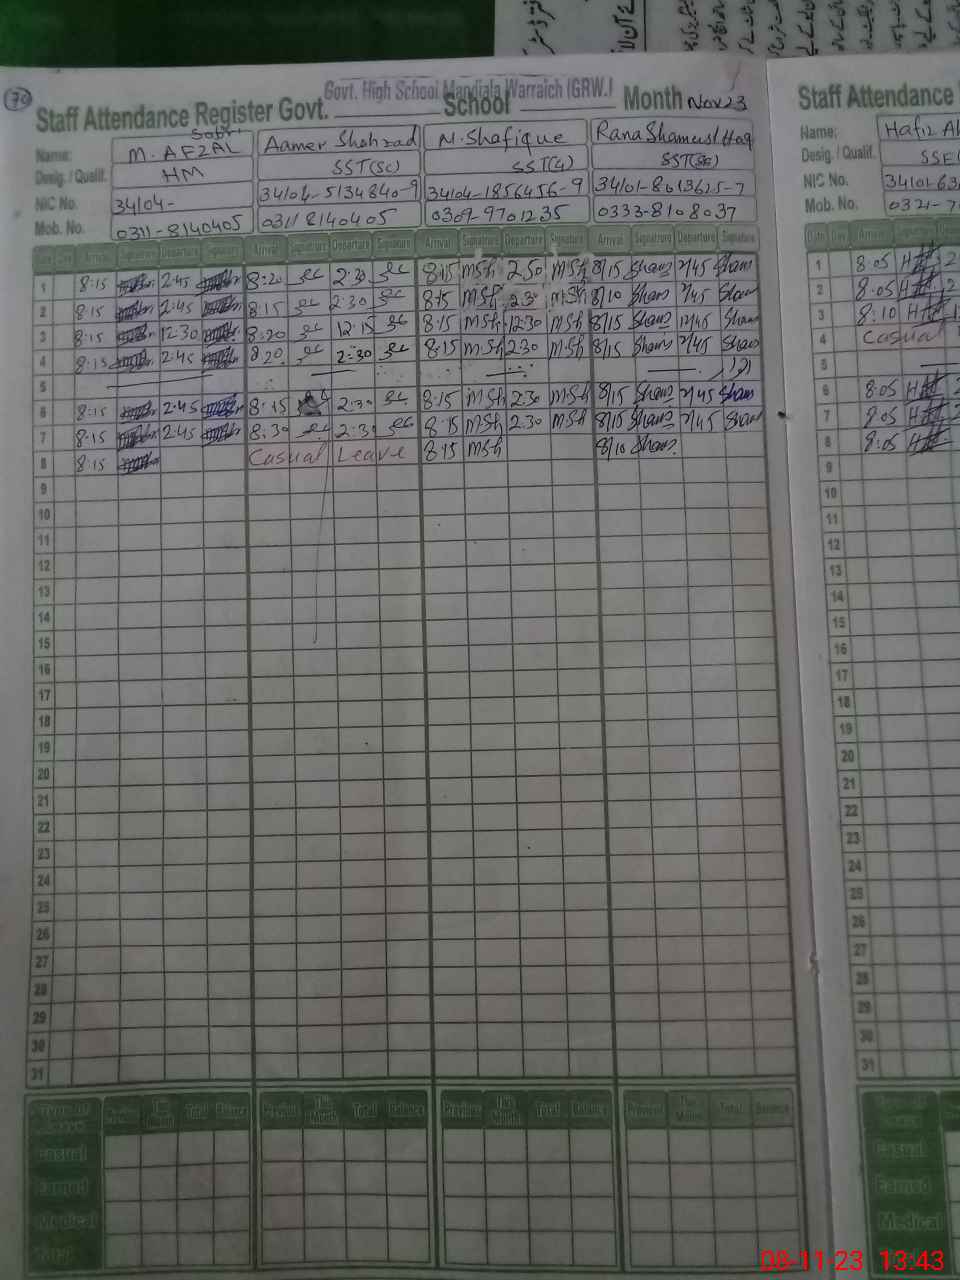 70
Govt. High School Mandiala Warraich (GRW.)
Staff Attendance Register Govt. School Month Nov 23
Name: M. AFZAL Aamer Shahzad M. Shafique Rana Shamsul Haq
Desig. / Qualif. HM SST(SC) SST(G)
NIC No. 34104- 34104-5134840-9 34104-1856456-9 34101-8013625-7
Mob. No. 0311-8140405 0311 8140405 0309-9701235 0333-8108037
Date Day Arrival Signature Departure Signature Arrival Signature Departure Signature Arrival Signature Departure Signature Arrival Signature Departure Signature
1 8:15 2:45 8:20 2:30 8:15 MSh 2:50 MSh 8/15 Sham 2/45 Sham
2 8:15 2:45 8:15 2:30 8:15 MSh 2:30 MSh 8/10 Sham 2/45 Sham
3 8:15 12:30 8:20 12:15 8:15 MSh 12:30 MSh 8/15 Sham 12/45 Sham
4 8:15 2:45 8:20 2:30 8:15 MSh 2:30 MSh 8/15 Sham 2/45 Sham
5
6 8:15 2:45 8:15 2:30 8:15 MSh 2:30 MSh 8/15 Sham 2/45 Sham
7 8:15 2:45 8:30 2:30 8:15 MSh 2:30 MSh 8/15 Sham 2/45 Sham
8 8:15 Casual Leave 8:15 MSh 8/10 Sham
9
10
11
12
13
14
15
16
17
18
19
20
21
22
23
24
25
26
27
28
29
30
31
Previous This Month Total Balance Previous This Month Total Balance Previous This Month Total Balance Previous This Month Total Balance
Casual
Earned
Medical
Total
Staff Attendance
Name: Hafiz
Desig. / Qualif. SSE
NIC No. 34101-63
Mob. No. 0321-7
Date Day Arrival Signature
1 8:05 2
2 8:05 2
3 8:10 1
4 Casual
5
6 8:05 2
7 8:05 2
8 8:05
9
10
11
12
13
14
15
16
17
18
19
20
21
22
23
24
25
26
27
28
29
30
31
Previous This Month
Casual
Earned
Medical
Total
08-11-23 13:43